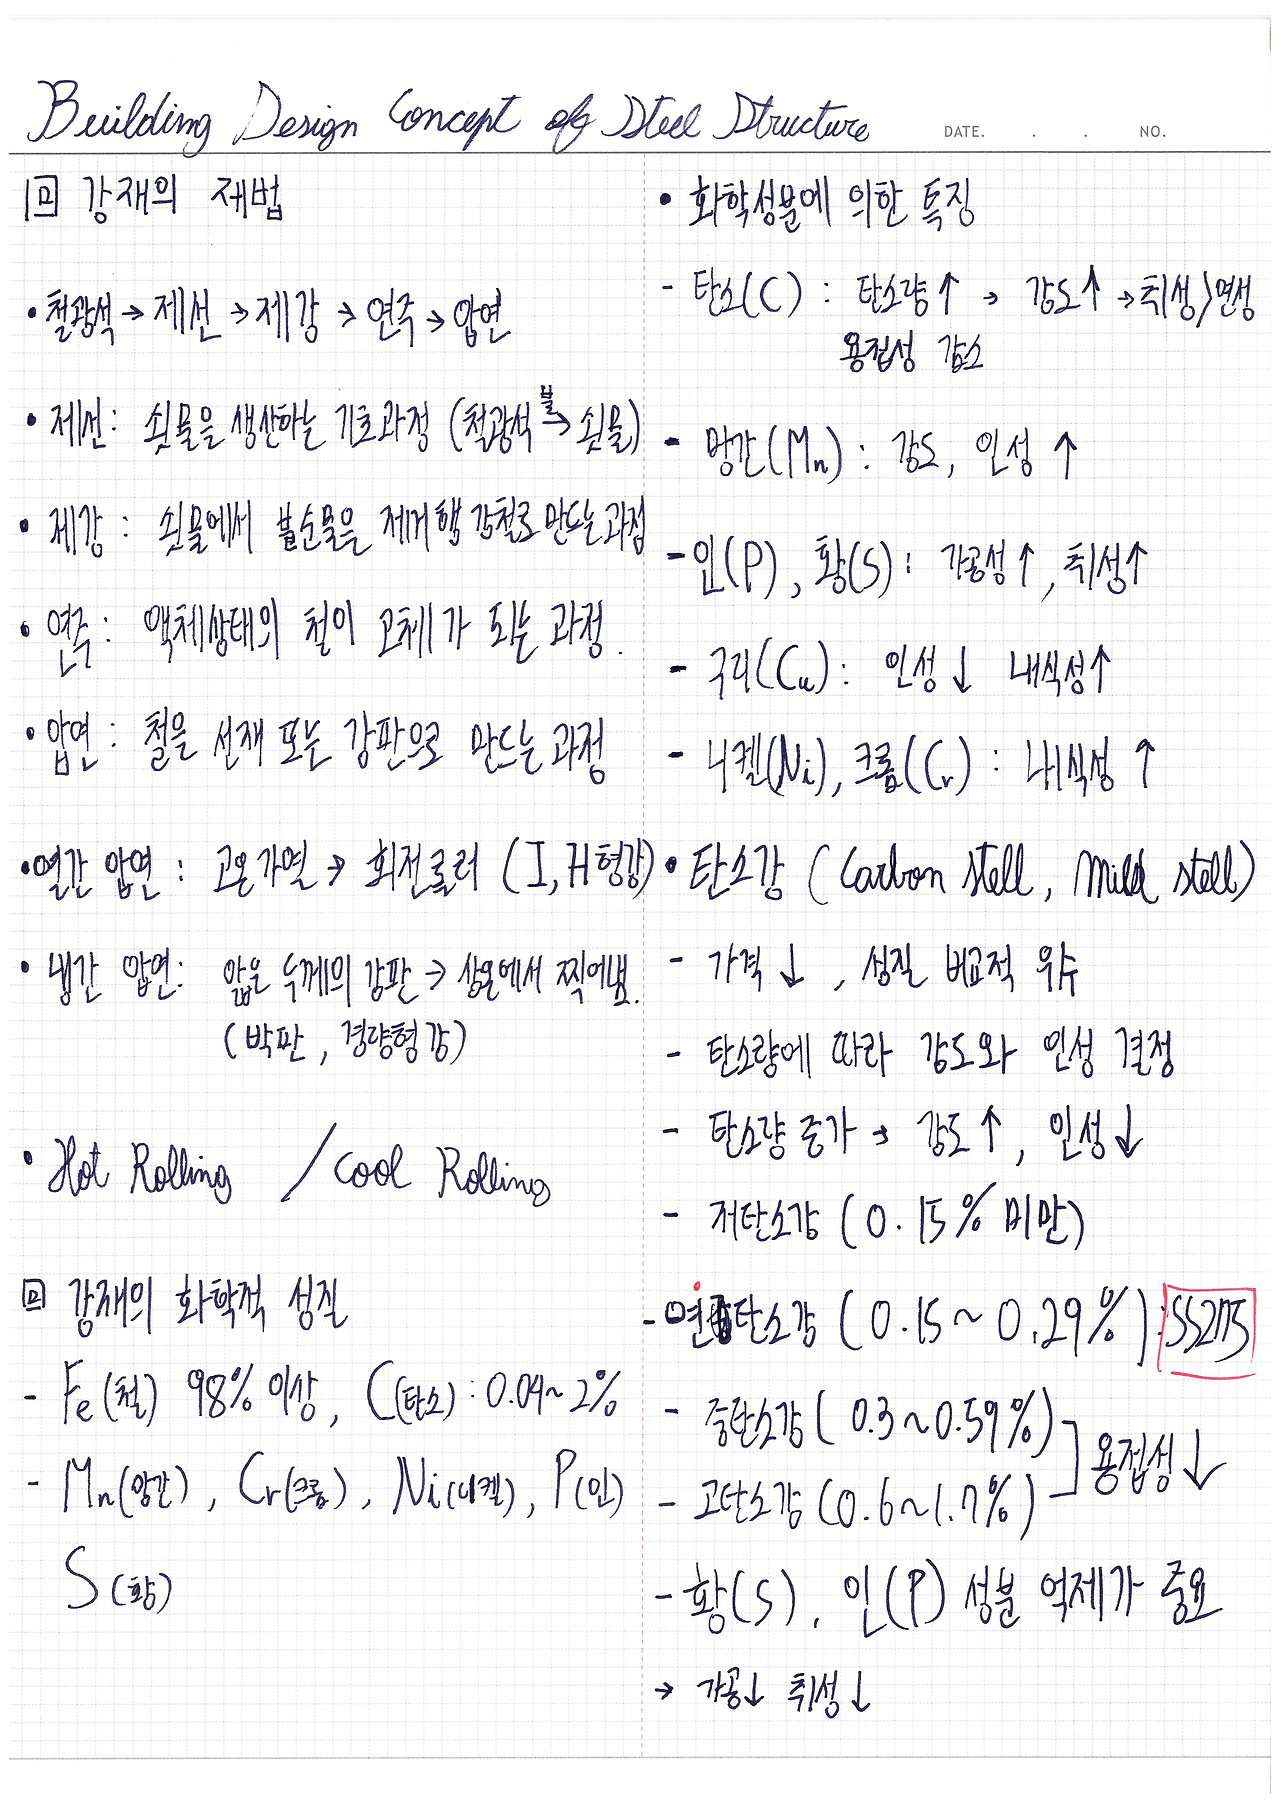 Building Design Concept of Steel Structure
DATE. . . NO.
1回 강재의 제법
• 철광석 → 제선 → 제강 → 연주 → 압연
• 제선: 쇳물을 생산하는 기초과정 (철광석 불→ 쇳물)
• 제강 : 쇳물에서 불순물을 제거해 강철로 만드는 과정
• 연주 : 액체상태의 철이 고체가 되는 과정.
• 압연 : 철을 선재 또는 강판으로 만드는 과정
• 열간 압연 : 고온가열 → 회전롤러 (I, H형강)
• 냉간 압연: 얇은 두께의 강판 → 상온에서 찍어냄.
(박판, 경량형강)
• Hot Rolling / Cool Rolling
回 강재의 화학적 성질
- Fe(철) 98% 이상, C(탄소) : 0.04~2%
- Mn(망간), Cr(크롬), Ni(니켈), P(인)
S(황)
• 화학성분에 의한 특징
- 탄소(C) : 탄소량↑ → 강도↑ → 취성/연성
용접성 감소
- 망간(Mn) : 강도, 인성 ↑
- 인(P), 황(S) : 가공성↑, 취성↑
- 구리(Cu) : 인성↓ 내식성↑
- 니켈(Ni), 크롬(Cr) : 내식성 ↑
• 탄소강 (Carbon stell, Mild stell)
- 가격↓, 성질 비교적 우수
- 탄소량에 따라 강도와 인성 결정
- 탄소량 증가 → 강도↑, 인성↓
- 저탄소강 (0.15% 미만)
- 연탄소강 (0.15~0.29%) : SS275
- 중탄소강 (0.3~0.59%)
- 고탄소강 (0.6~1.7%) ] 용접성↓
- 황(S), 인(P) 성분 억제가 중요
→ 가공↓ 취성↓